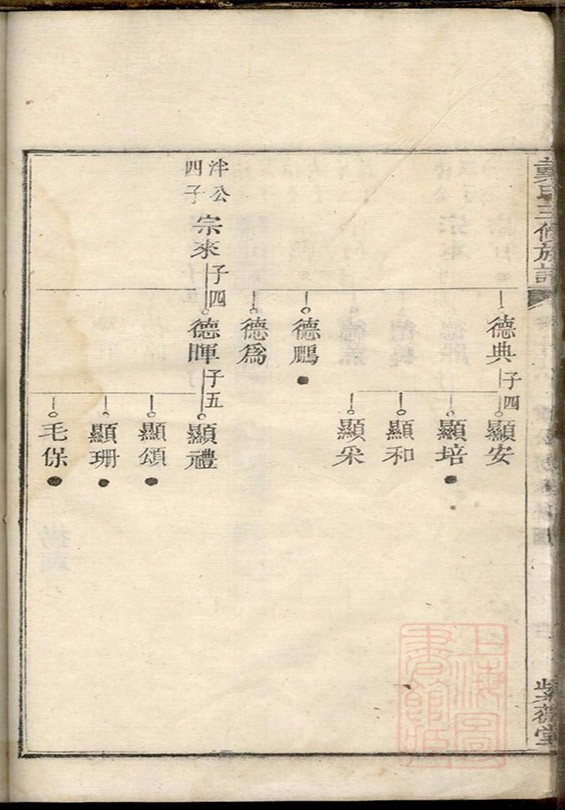 龔氏三修族譜
紫薇堂
德典
子四
顯安
顯培
顯和
顯采
德鵬
德爲
泮公
四子
宗來
子四
德暉
子五
顯禮
顯頌
顯珊
毛保
上海圖
書館藏